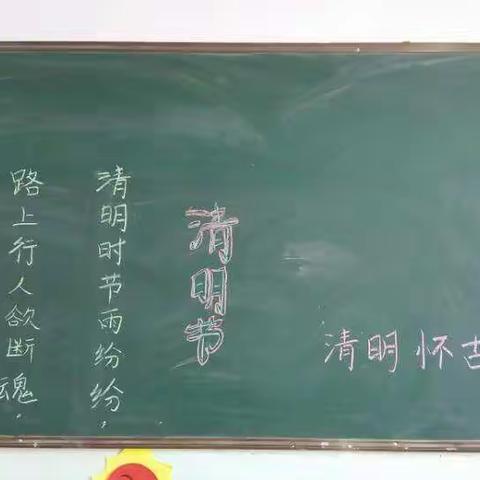 清明节
清明时节雨纷纷，
路上行人欲断魂。
清明怀古